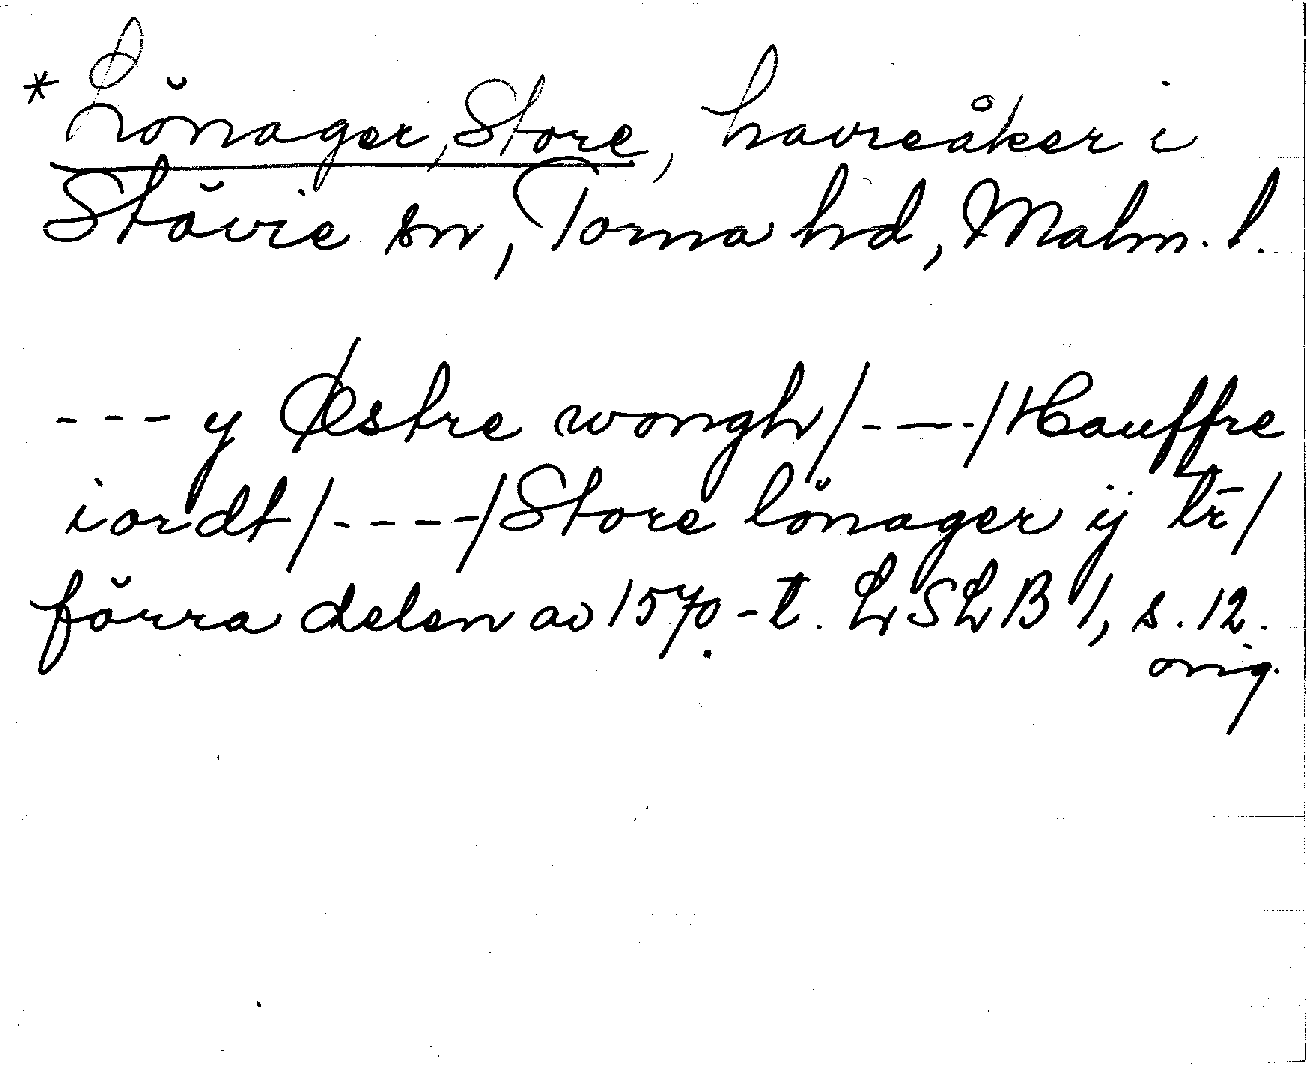 * Lönager, Store, havreåker i
Stävie sn, Torna hd, Malm. l.
--- y Østre wongh/---/Hauffre
iordt/----/Store lönager ij tr̄/
förra delen av 1570-t. LSLB 1, s. 12.
orig.